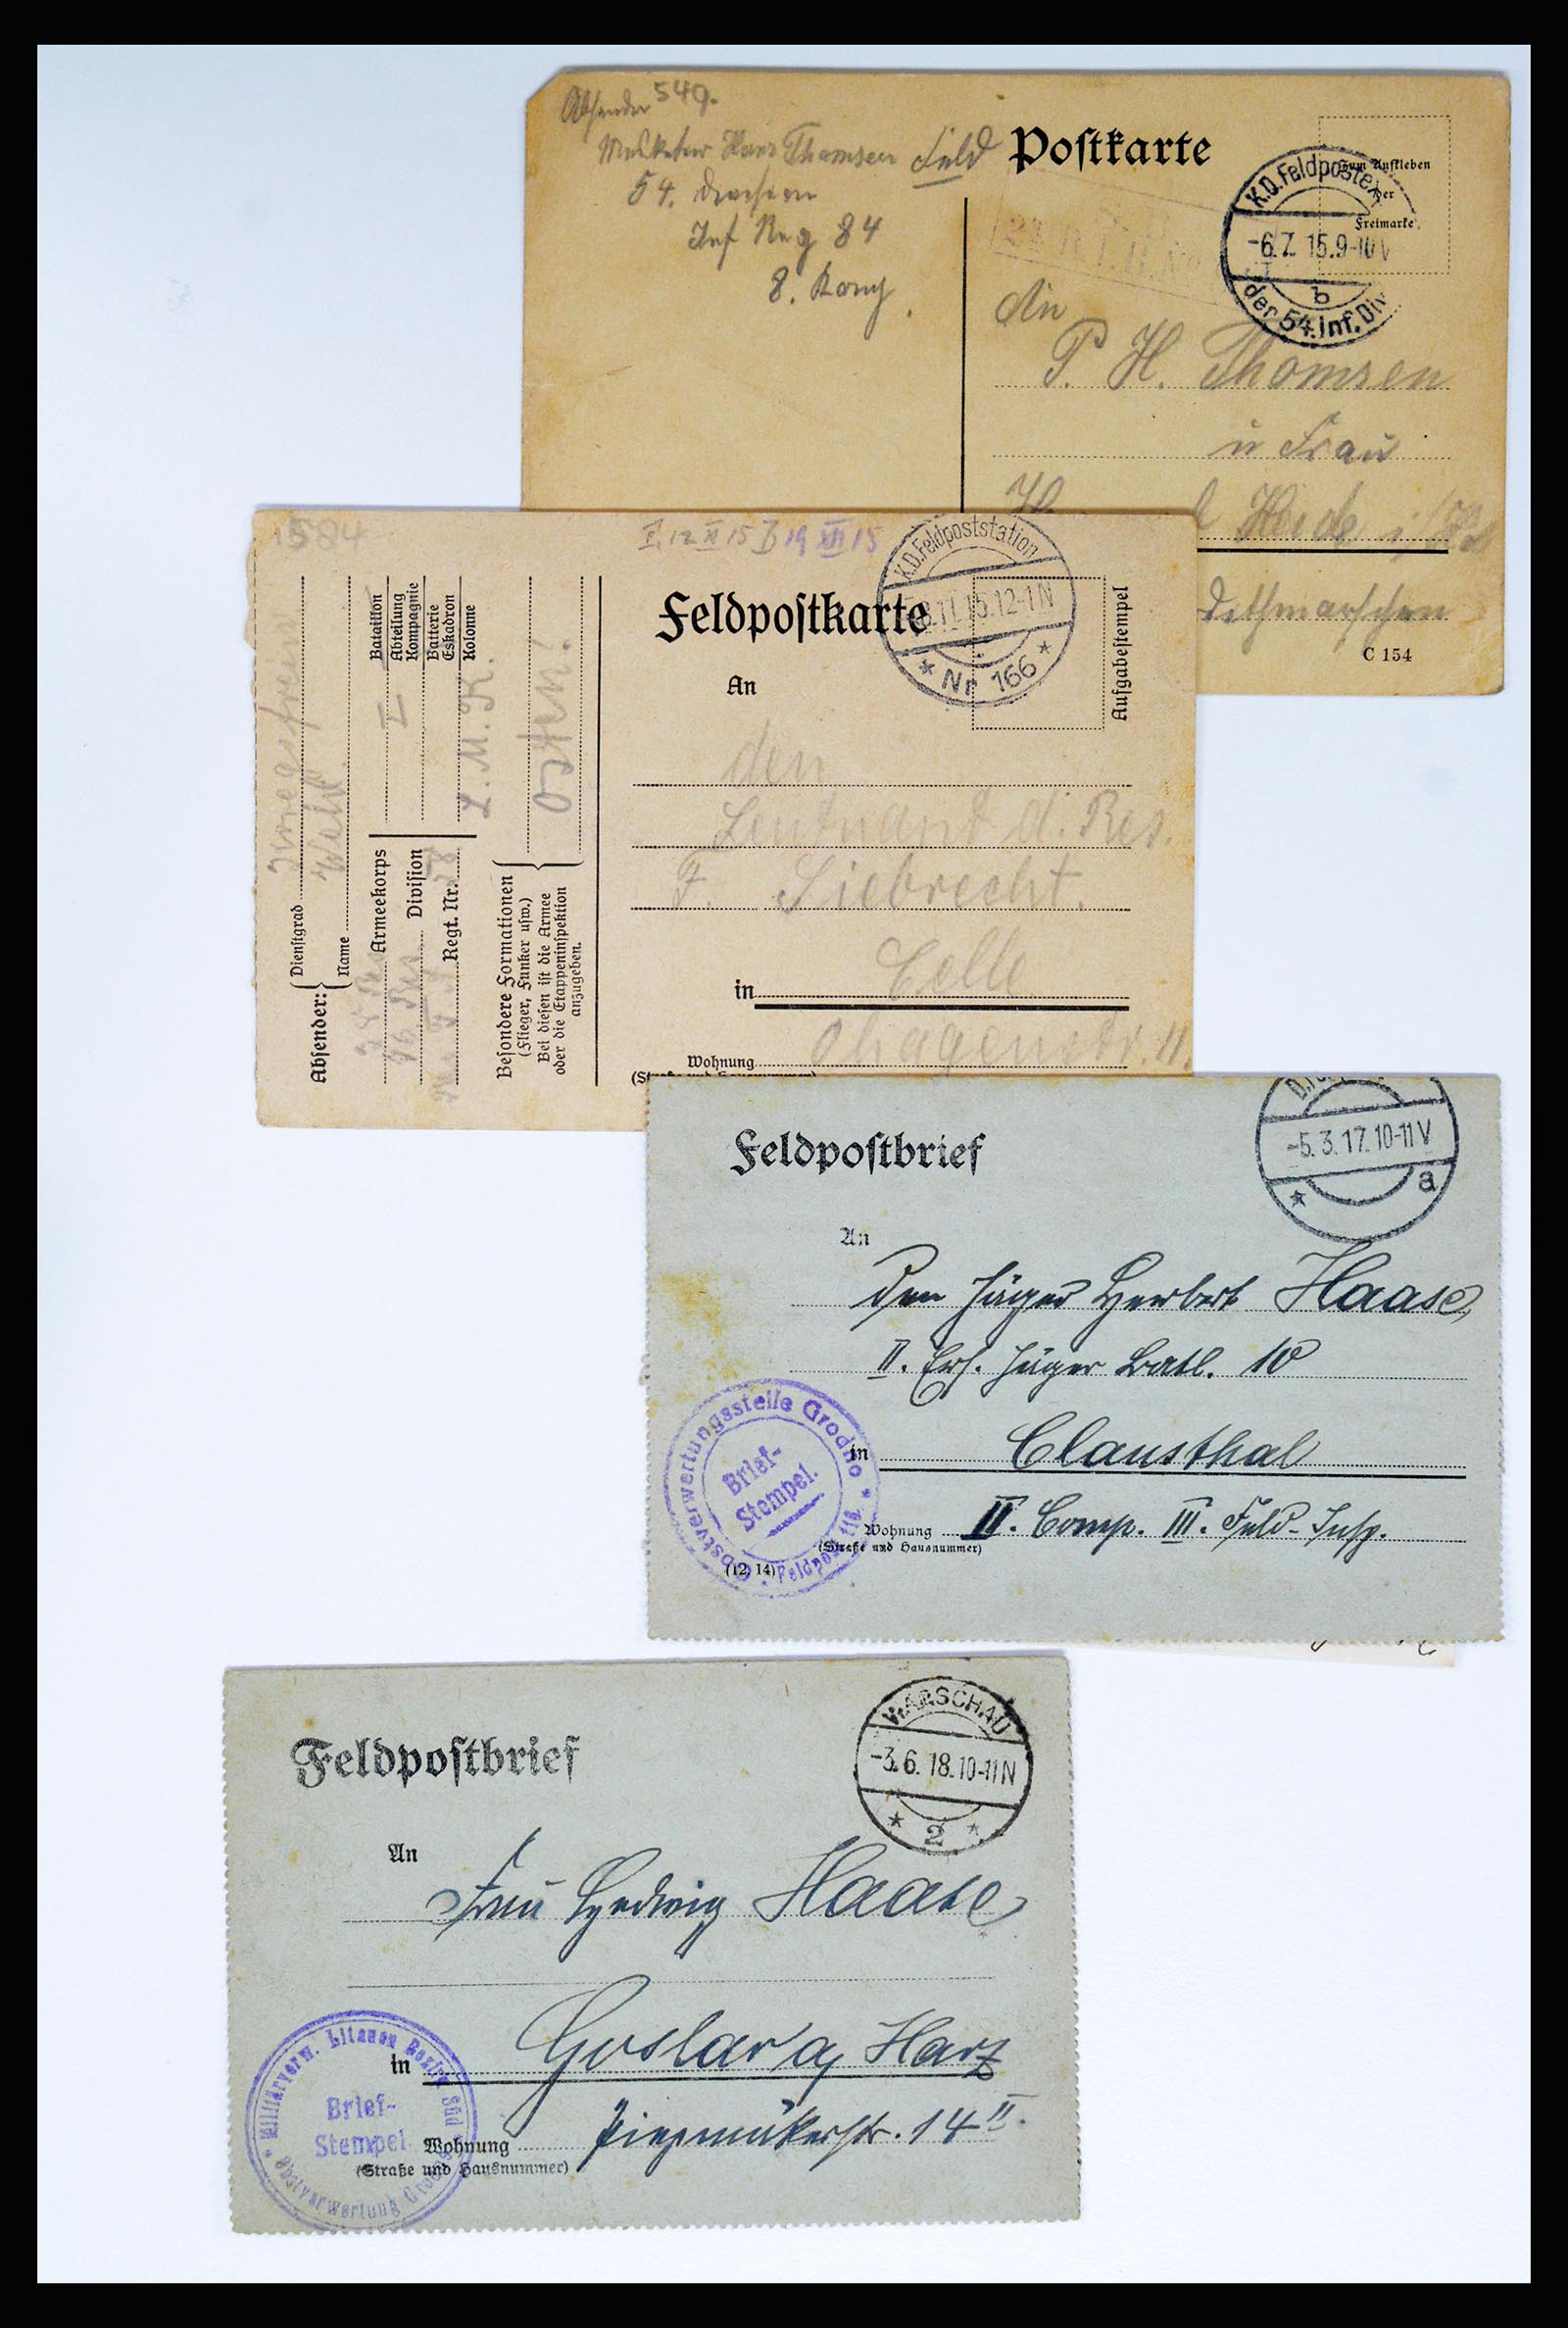 Absender 549.
Musketier Hans Thomsen Feld
54. Division
Inf Reg 84
8. Komp.
Postkarte
Zum Aufkleben
der
Freimarke
K.D.Feldpostex
-6.7.15.9-10V
b
der 54.Inf.Div
An
P. H. Thomsen
u Frau
Heide i/
Dithmarschen
C 154
1584
12 XI 15 19 XII 15
Feldpostkarte
K.D.Feldpoststation
11.15.12-1N
* Nr 166 *
Aufgabestempel
An
den
Leutnant d. Res.
F. Siebrecht.
in Celle
Wohnung
Absender:
Dienstgrad
Name
Armeekorps
Division
Regt. Nr.
Bataillon
Abteilung
Kompagnie
Batterie
Eskadron
Kolonne
I
L. M. K.
Besondere Formationen
(Flieger, Funker usw.)
Bei diesen ist die Armee
oder die Etappeninspektion
anzugeben.
Osten!
Feldpostbrief
-5.3.17.10-11V
* a
An
den Jäger Herbert Haase
II. Ers. Jäger Batl. 10
in Clausthal
Wohnung II. Comp. III. Feld-Insp.
(Straße und Hausnummer)
(12. 14)
Obstverwertungsstelle Grodno
Brief-
Stempel.
Feldpost
Feldpostbrief
WARSCHAU
-3.6.18.10-11N
* 2 *
An
Frau Hedwig Haase
in Goslar a/ Harz
Wohnung Piepmäkerstr. 14 II.
(Straße und Hausnummer)
Militärverw. Litauen Bezirk Süd
Brief-
Stempel.
Obstverwertung Grodno